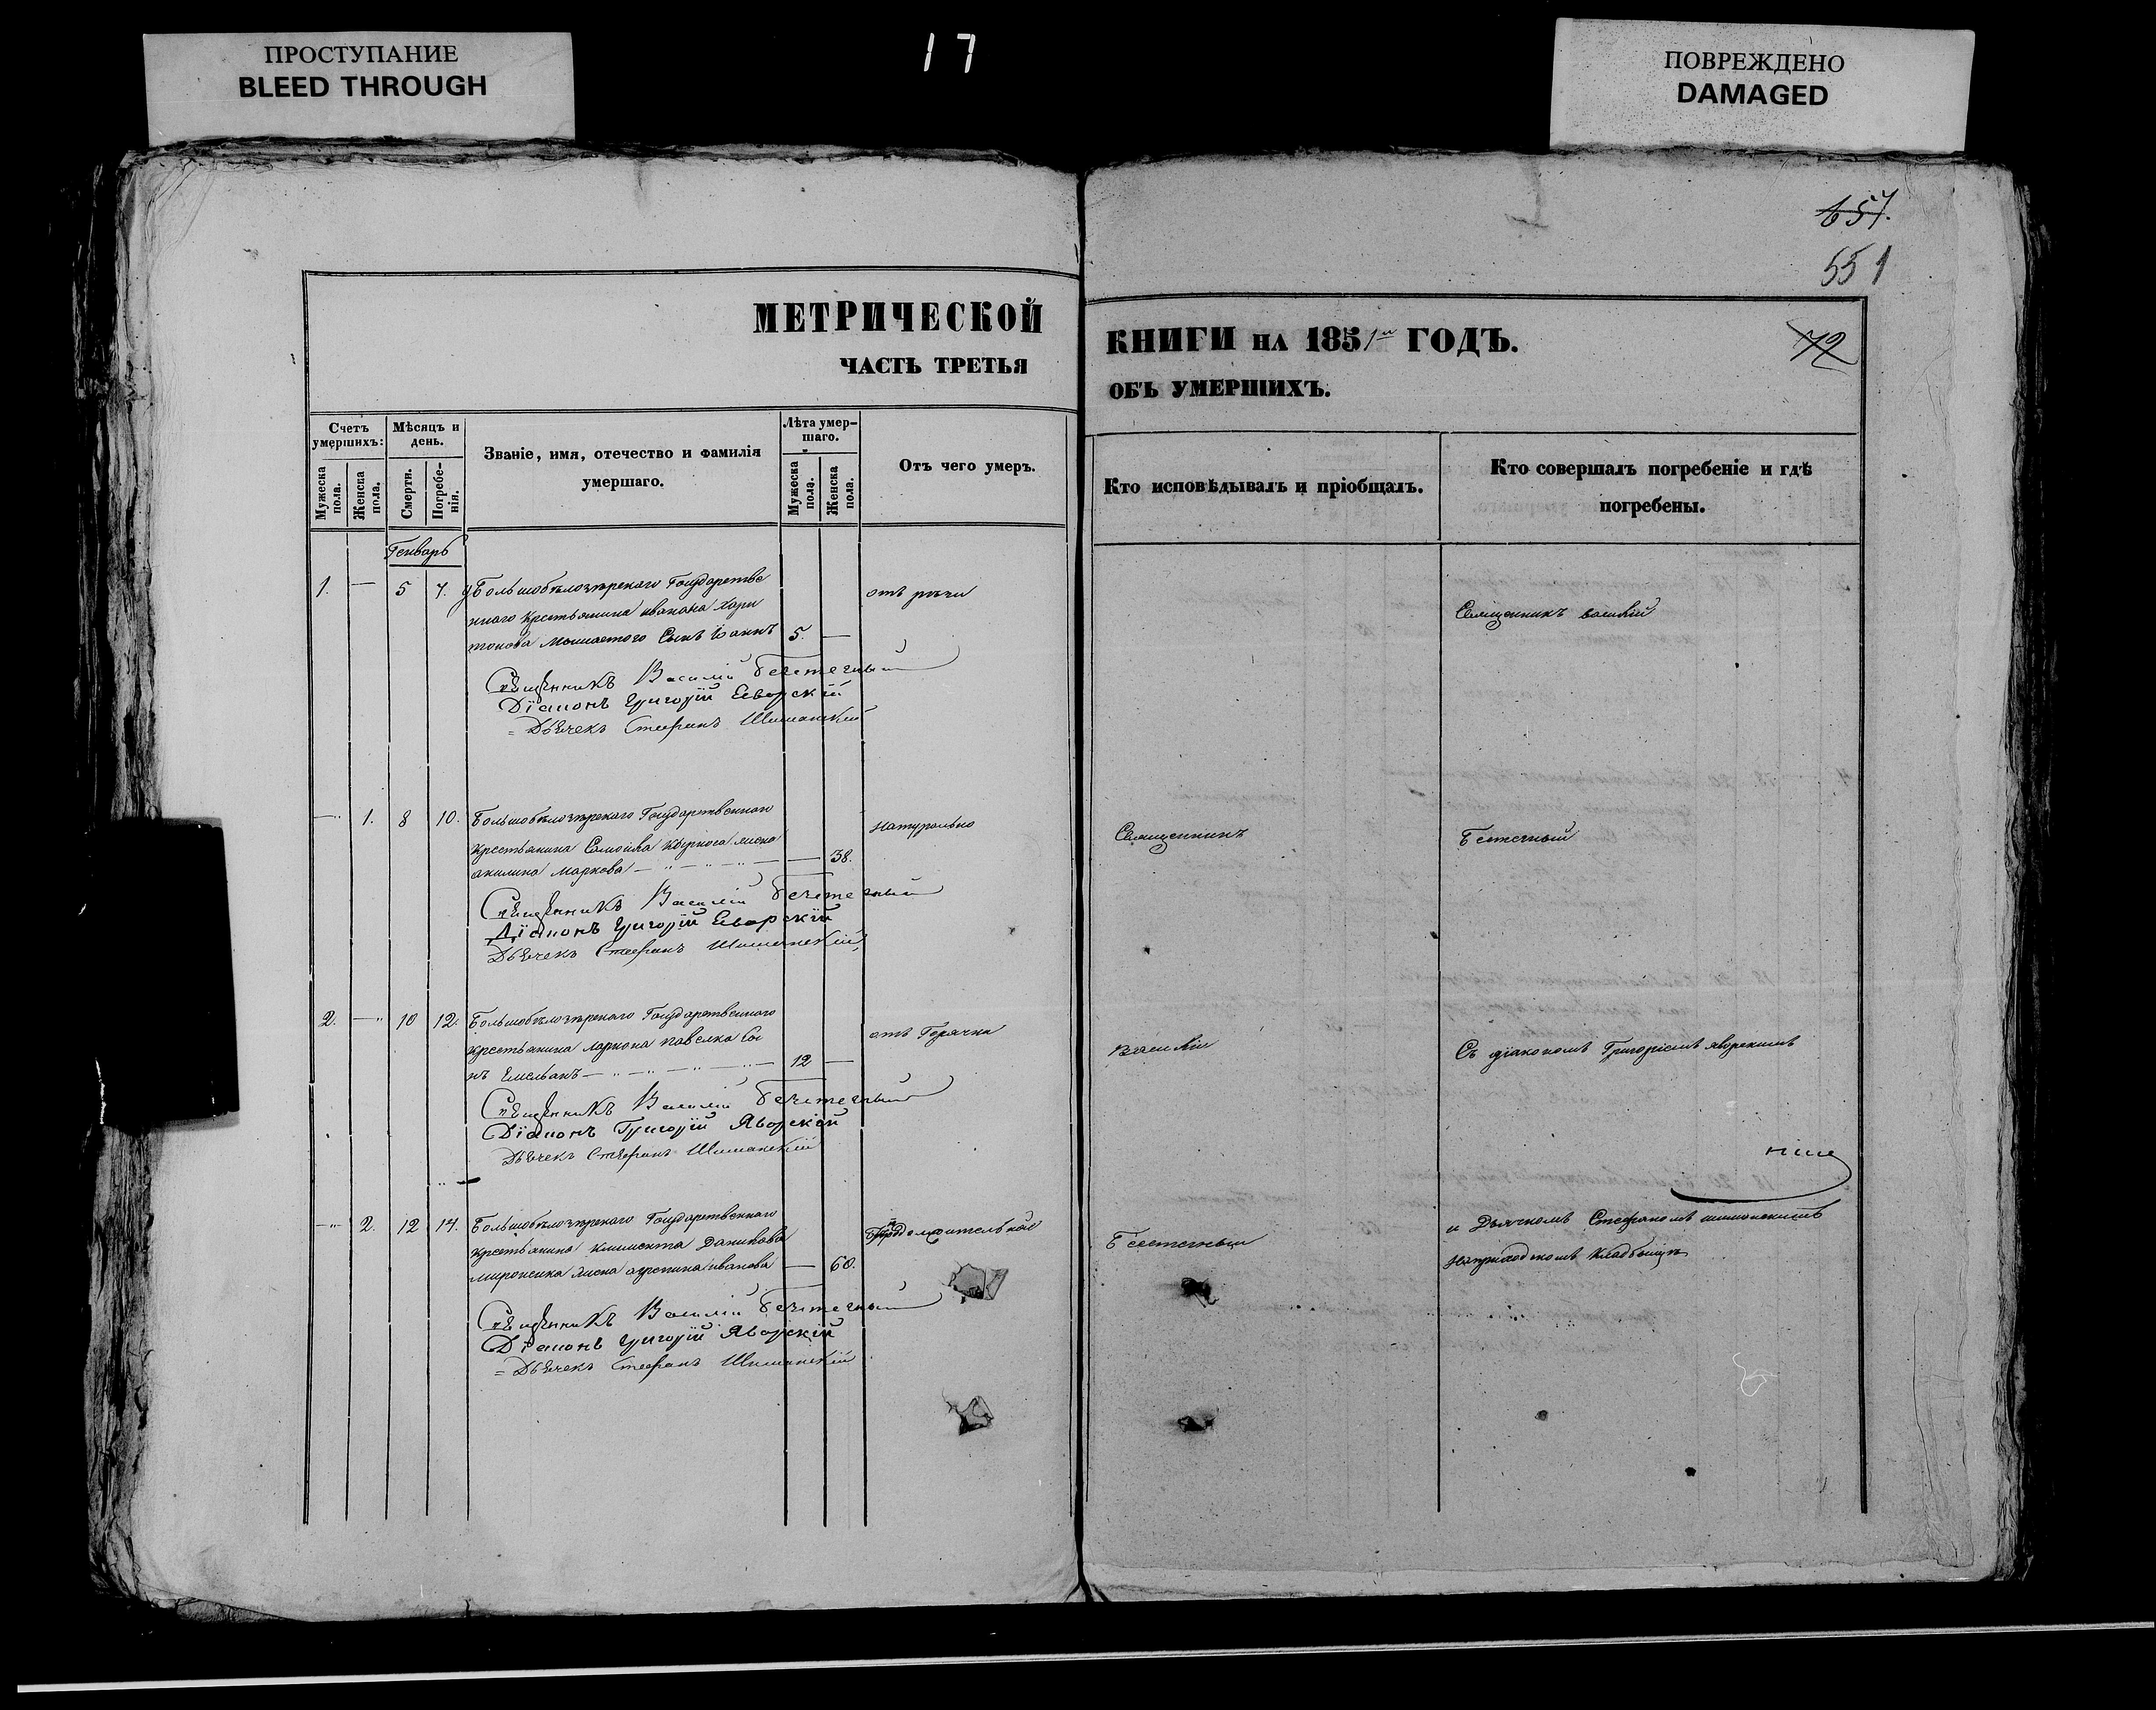 ПРОСТУПАНИЕ
BLEED THROUGH
17
ПОВРЕЖДЕНО
DAMAGED
657.
551
72
МЕТРИЧЕСКОЙ
ЧАСТЬ ТРЕТЬЯ
КНИГИ НА 1851 ГОДЪ.
ОБЪ УМЕРШИХЪ.
Счетъ умершихъ:
Мужеска пола.
Женска пола.
Мѣсяцъ и день.
Смерти.
Погребенія.
Званіе, имя, отечество и фамилія
умершаго.
Лѣта умершаго.
Мужеска пола.
Женска пола.
Отъ чего умеръ.
Кто исповѣдывалъ и пріобщалъ.
Кто совершалъ погребеніе и гдѣ
погребены.
Генварь
1. — 5 7. Большобѣлозѣрскаго Государстве
ннаго Крестьянина Ивана Хари
тонова Сынъ Іоаннъ 5. —
отъ
Священникъ Василій
Священникъ Василій Бестечный
Діаконъ Григорій Еворскій
Дьячекъ Стефанъ Шиманскій
— 1. 8 10. Большобѣлозѣрскаго Государственнаго
Крестьянина Самойла жена
акилина Маркова — 38.
Натурально
Священникъ
Бестечный
Священникъ Василій Бестечный
Діаконъ Григорій Еворскій
Дьячекъ Стефанъ Шиманскій
2. — 10 12. Большобѣлозѣрскаго Государственнаго
Крестьянина Ларіона Павелка Сы
нъ Емельянъ — 12 —
отъ Горячки
Василій
Съ діакономъ Григоріемъ Яворскимъ
Священникъ Василій Бестечный
Діаконъ Григорій Яворскій
Дьячекъ Стефанъ Шиманскій
— 2. 12 14. Большобѣлозѣрскаго Государственнаго
Крестьянина Климента Данилова
жена агрепина Иванова — 60.
Бестечный
и Дьячкомъ Стефаномъ Шиманскимъ
На приходскомъ Кладбищѣ
Священникъ Василій Бестечный
Діаконъ Григорій Яворскій
Дьячекъ Стефанъ Шиманскій